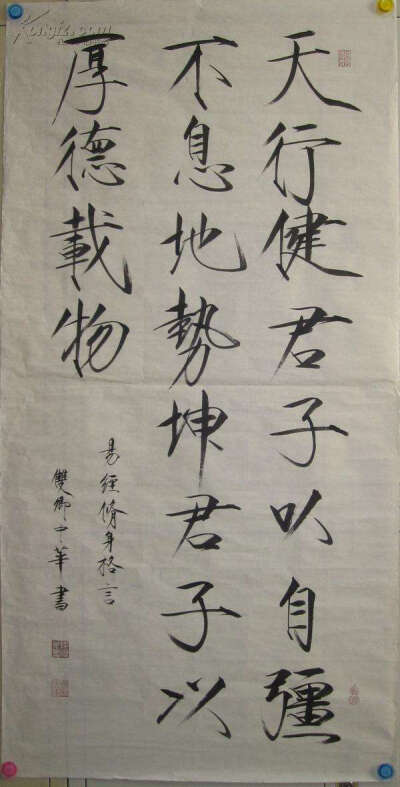 天行健君子以自彊
不息地勢坤君子以
厚德載物
易經脩身格言
雙鄉中華書